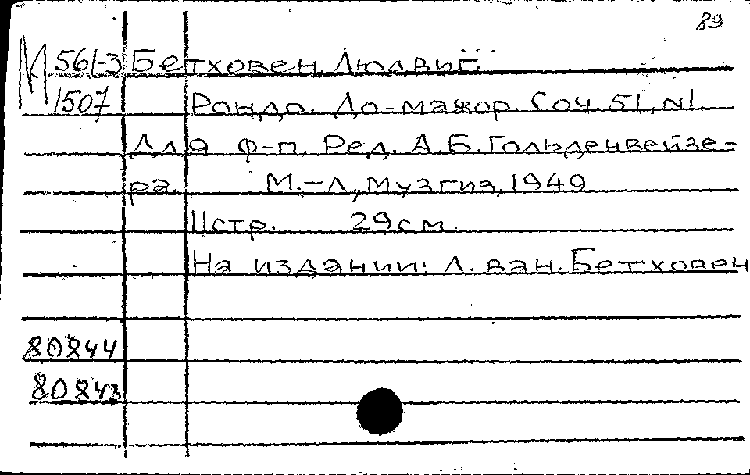 89
М 561-3 Бетховен, Людвиг
1507 Рондо. До-мажор Соч. 51, N1.
Для ф-п. Ред. А.Б. Гольденвейзе-
ра. М.-Л, Музгиз, 1949
11стр. 29см.
На издании: Л. ван. Бетховен
80844
80843